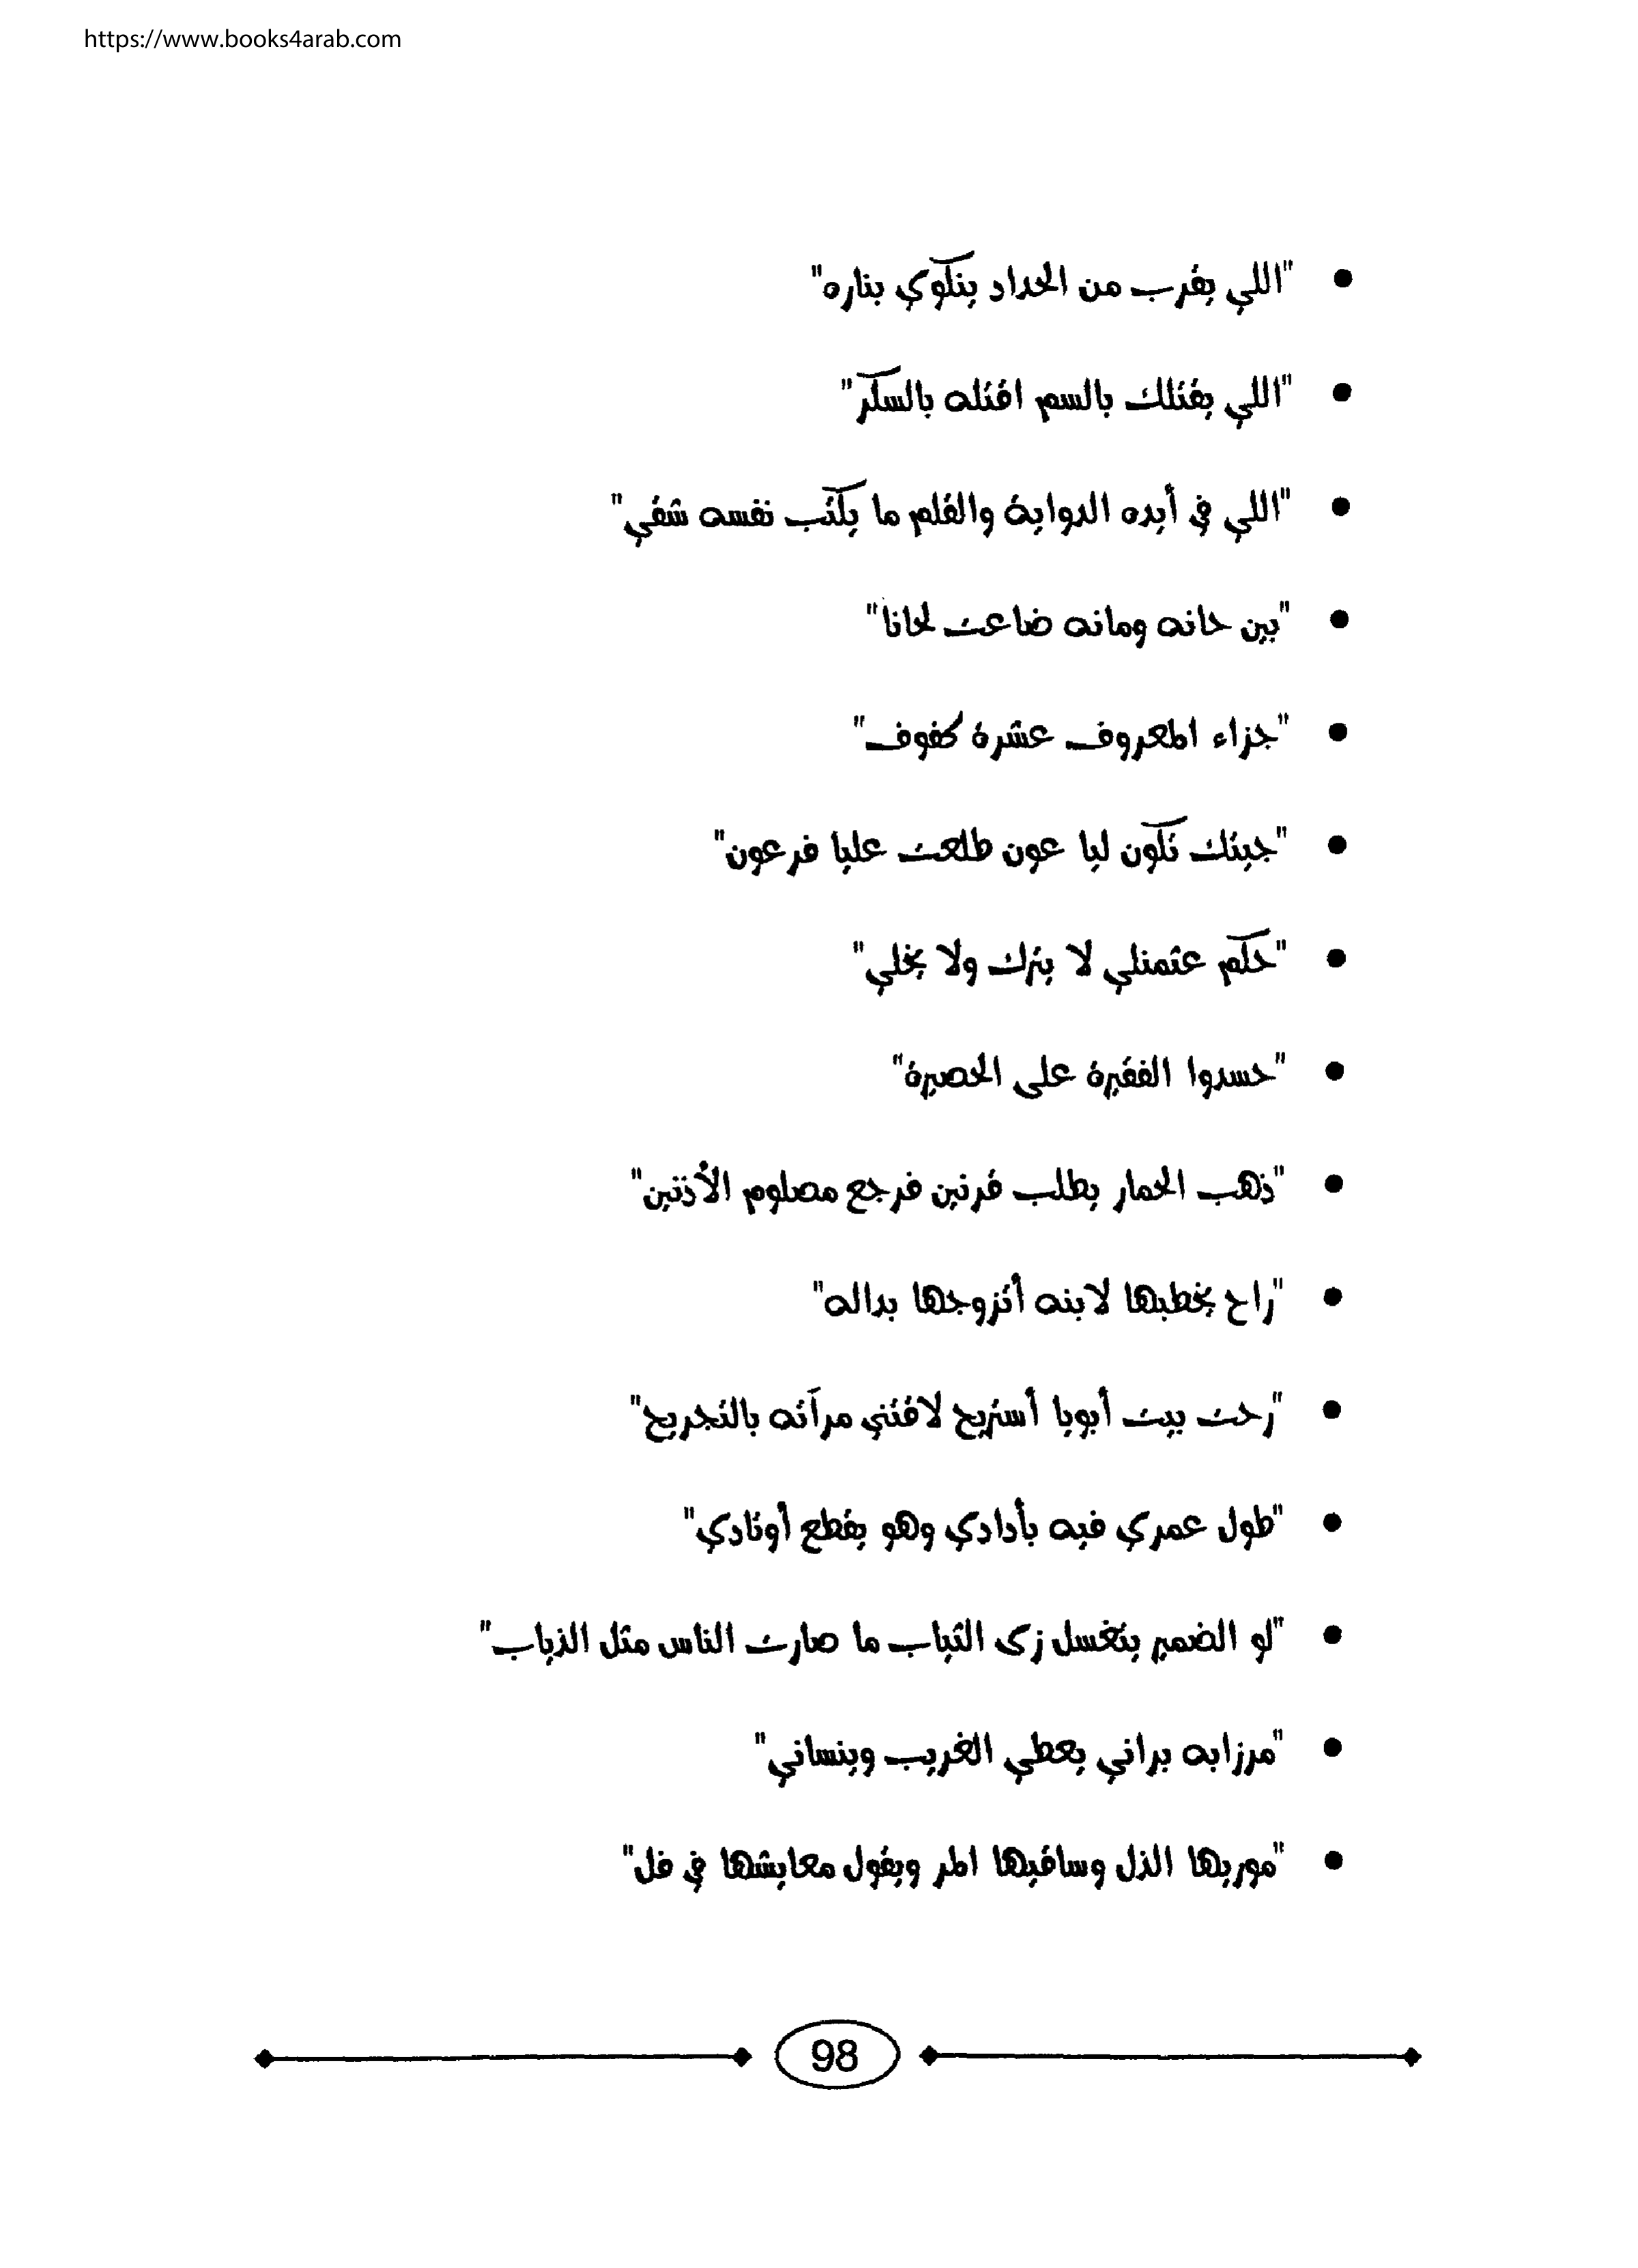 https://www.books4arab.com
• "اللي يقرب من الحداد ينكوي بناره"
• "اللي يقتلك بالسم اقتله بالسكر"
• "اللي في أيده الدواية والقلم ما يكتب نفسه شقي"
• "بين حانه ومانه ضاعت لحانا"
• "جزاء المعروف عشرة كفوف"
• "جيتك تكون ليا عون طلعت عليا فرعون"
• "حكم عثمنلي لا يترك ولا يخلي"
• "حسدوا الفقيرة على الحصيرة"
• "ذهب الحمار يطلب قرنين فرجع مصلوم الأذنين"
• "راح يخطبها لابنه أتزوجها بداله"
• "رحت بيت أبويا أستريح لاقتني مرآته بالتجريح"
• "طول عمري فيه بأدادي وهو يقطع أوتادي"
• "لو الضمير يتغسل زى الثياب ما صارت الناس مثل الذياب"
• "مرزابه براني يعطي الغريب وينساني"
• "موريها الذل وساقيها المر ويقول معايشها في فل"
98